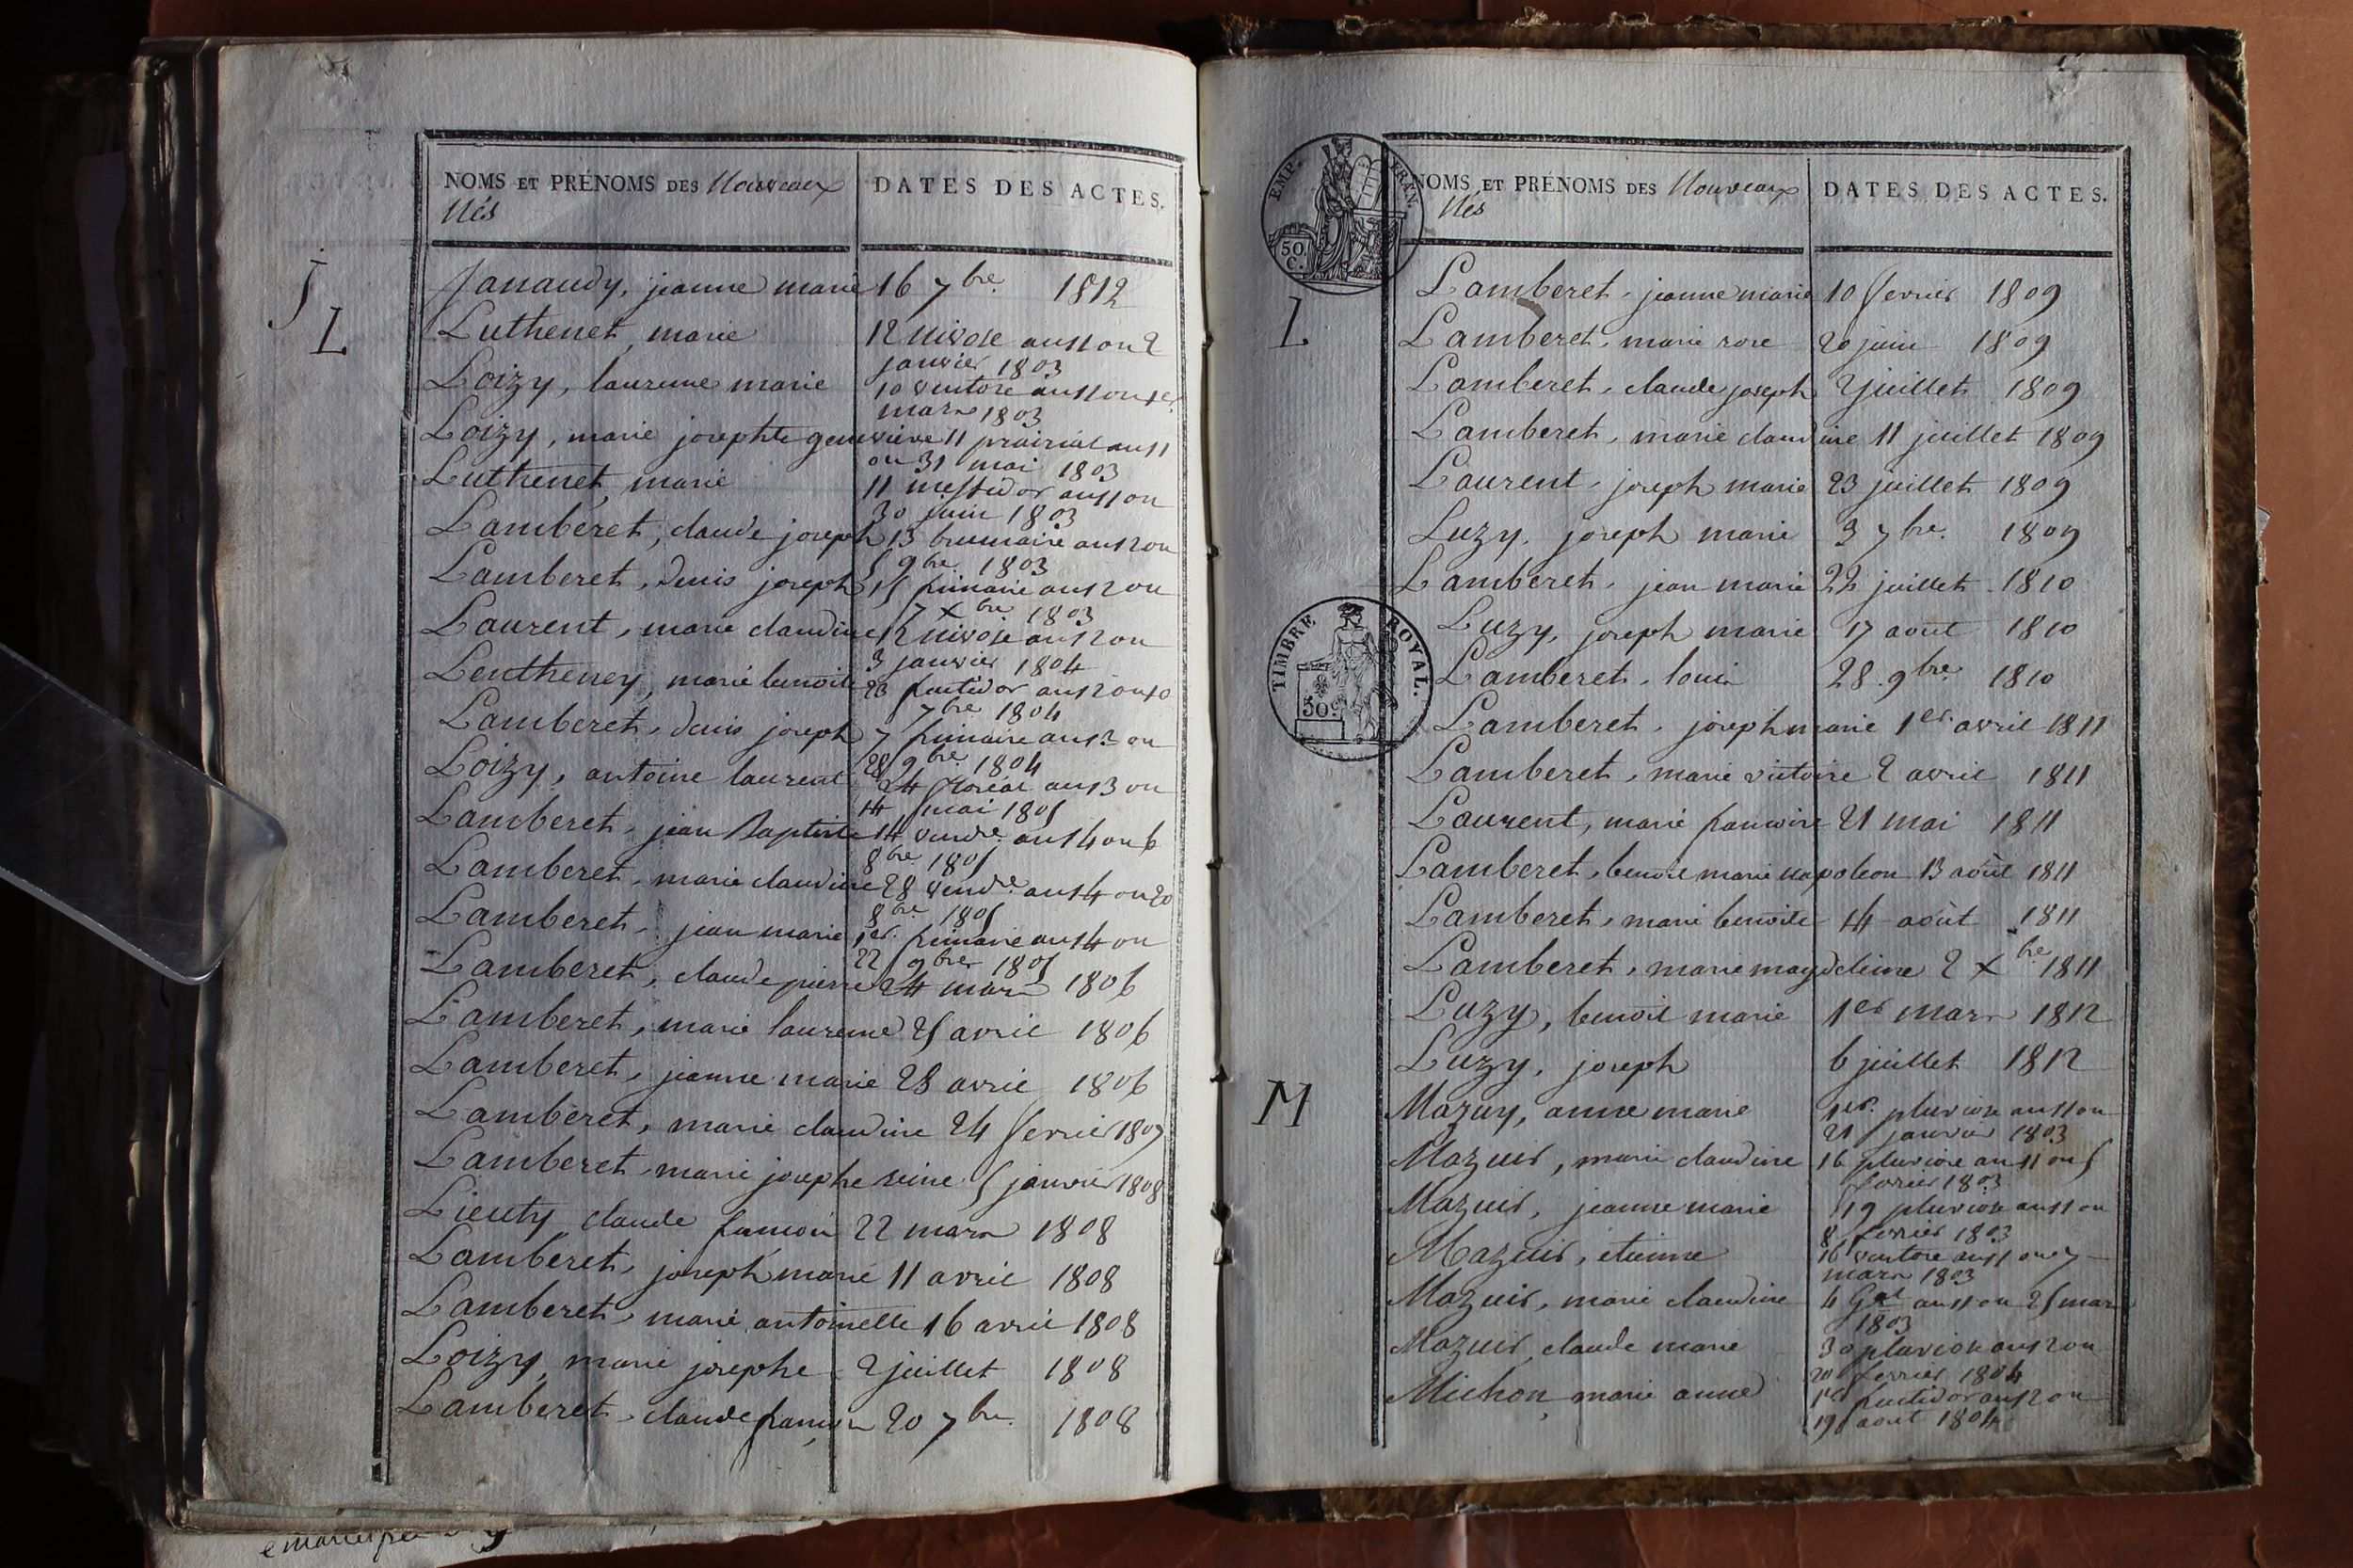 NOMS ET PRÉNOMS DES Nouveaux
Nés
DATES DES ACTES.
J
Janaudy, jeanne marie 16 7bre. 1812
L
Luthenet, marie 12 nivose an 11 ou 2
janvier 1803
Loizy, laurence marie 10 ventose an 11 ou 1er
mars 1803
Loizy, marie josephte genevieve 11 prairial an 11
ou 31 mai 1803
Luthenet, marie 11 messidor an 11 ou
30 juin 1803
Lamberet, claude joseph 13 brumaire an 12 ou
5 9bre. 1803
Lamberet, denis joseph 15 frimaire an 12 ou
7 Xbre 1803
Laurent, marie claudine 12 nivose an 12 ou
3 janvier 1804
Lentheney, marie benoite 23 fructidor an 12 ou 10
7bre 1804
Lamberet, denis joseph 7 frimaire an 13 ou
28 9bre. 1804
Loizy, antoine laurent 24 floréal an 13 ou
14 mai 1805
Lamberet, jean Baptiste 14 vendre. an 14 ou 6
8bre 1805
Lamberet, marie claudine 28 vendre. an 14 ou 20
8bre. 1805
Lamberet, jean marie 1er. frimaire an 14 ou
22 9bre 1805
Lamberet, claude pierre 24 mars 1806
Lamberet, marie laurence 25 avril 1806
Lamberet, jeanne marie 28 avril 1806
Lamberet, marie claudine 24 fevrier 1807
Lamberet, marie josephe reine 5 janvier 1808
Lieuty, claude francois 22 mars 1808
Lamberet, joseph marie 11 avril 1808
Lamberet, marie antoinette 16 avril 1808
Loizy, marie josephe 2 juillet 1808
Lamberet, claude francois 20 7bre. 1808
EMP. FRAN.
50
C.
NOMS ET PRÉNOMS DES Nouveaux
Nés
DATES DES ACTES.
L
Lamberet, jeanne marie 10 fevrier 1809
Lamberet, marie rose 20 juin 1809
Lamberet, claude joseph 2 juillet 1809
Lamberet, marie claudine 11 juillet 1809
Laurent, joseph marie 23 juillet 1809
Luzy, joseph marie 3 7bre. 1809
Lamberet, jean marie 22 juillet 1810
TIMBRE ROYAL.
50c
Luzy, joseph marie 17 août 1810
Lamberet, louis 28 9bre. 1810
Lamberet, joseph marie 1er. avril 1811
Lamberet, marie victoire 2 avril 1811
Laurent, marie francoise 21 mai 1811
Lamberet, benoit marie napoleon 13 août 1811
Lamberet, marie benoite 14 août 1811
Lamberet, marie magdeleine 2 Xbre 1811
Luzy, benoit marie 1er mars 1812
Luzy, joseph 6 juillet 1812
M
Mazuy, anne marie 1er. pluviose an 11 ou
21 janvier 1803
Mazuir, marie claudine 16 pluviose an 11 ou 5
fevrier 1803
Mazuir, jeanne marie 19 pluviose an 11 ou
8 fevrier 1803
Mazuir, etienne 16 ventose an 11 ou 7
mars 1803
Mazuir, marie claudine 4 Gal an 11 ou 25 mars
1803
Mazuir, claude marie 30 pluviose an 12 ou
20 fevrier 1804
Michon, marie anne 1er fructidor an 12 ou
19 aout 1804